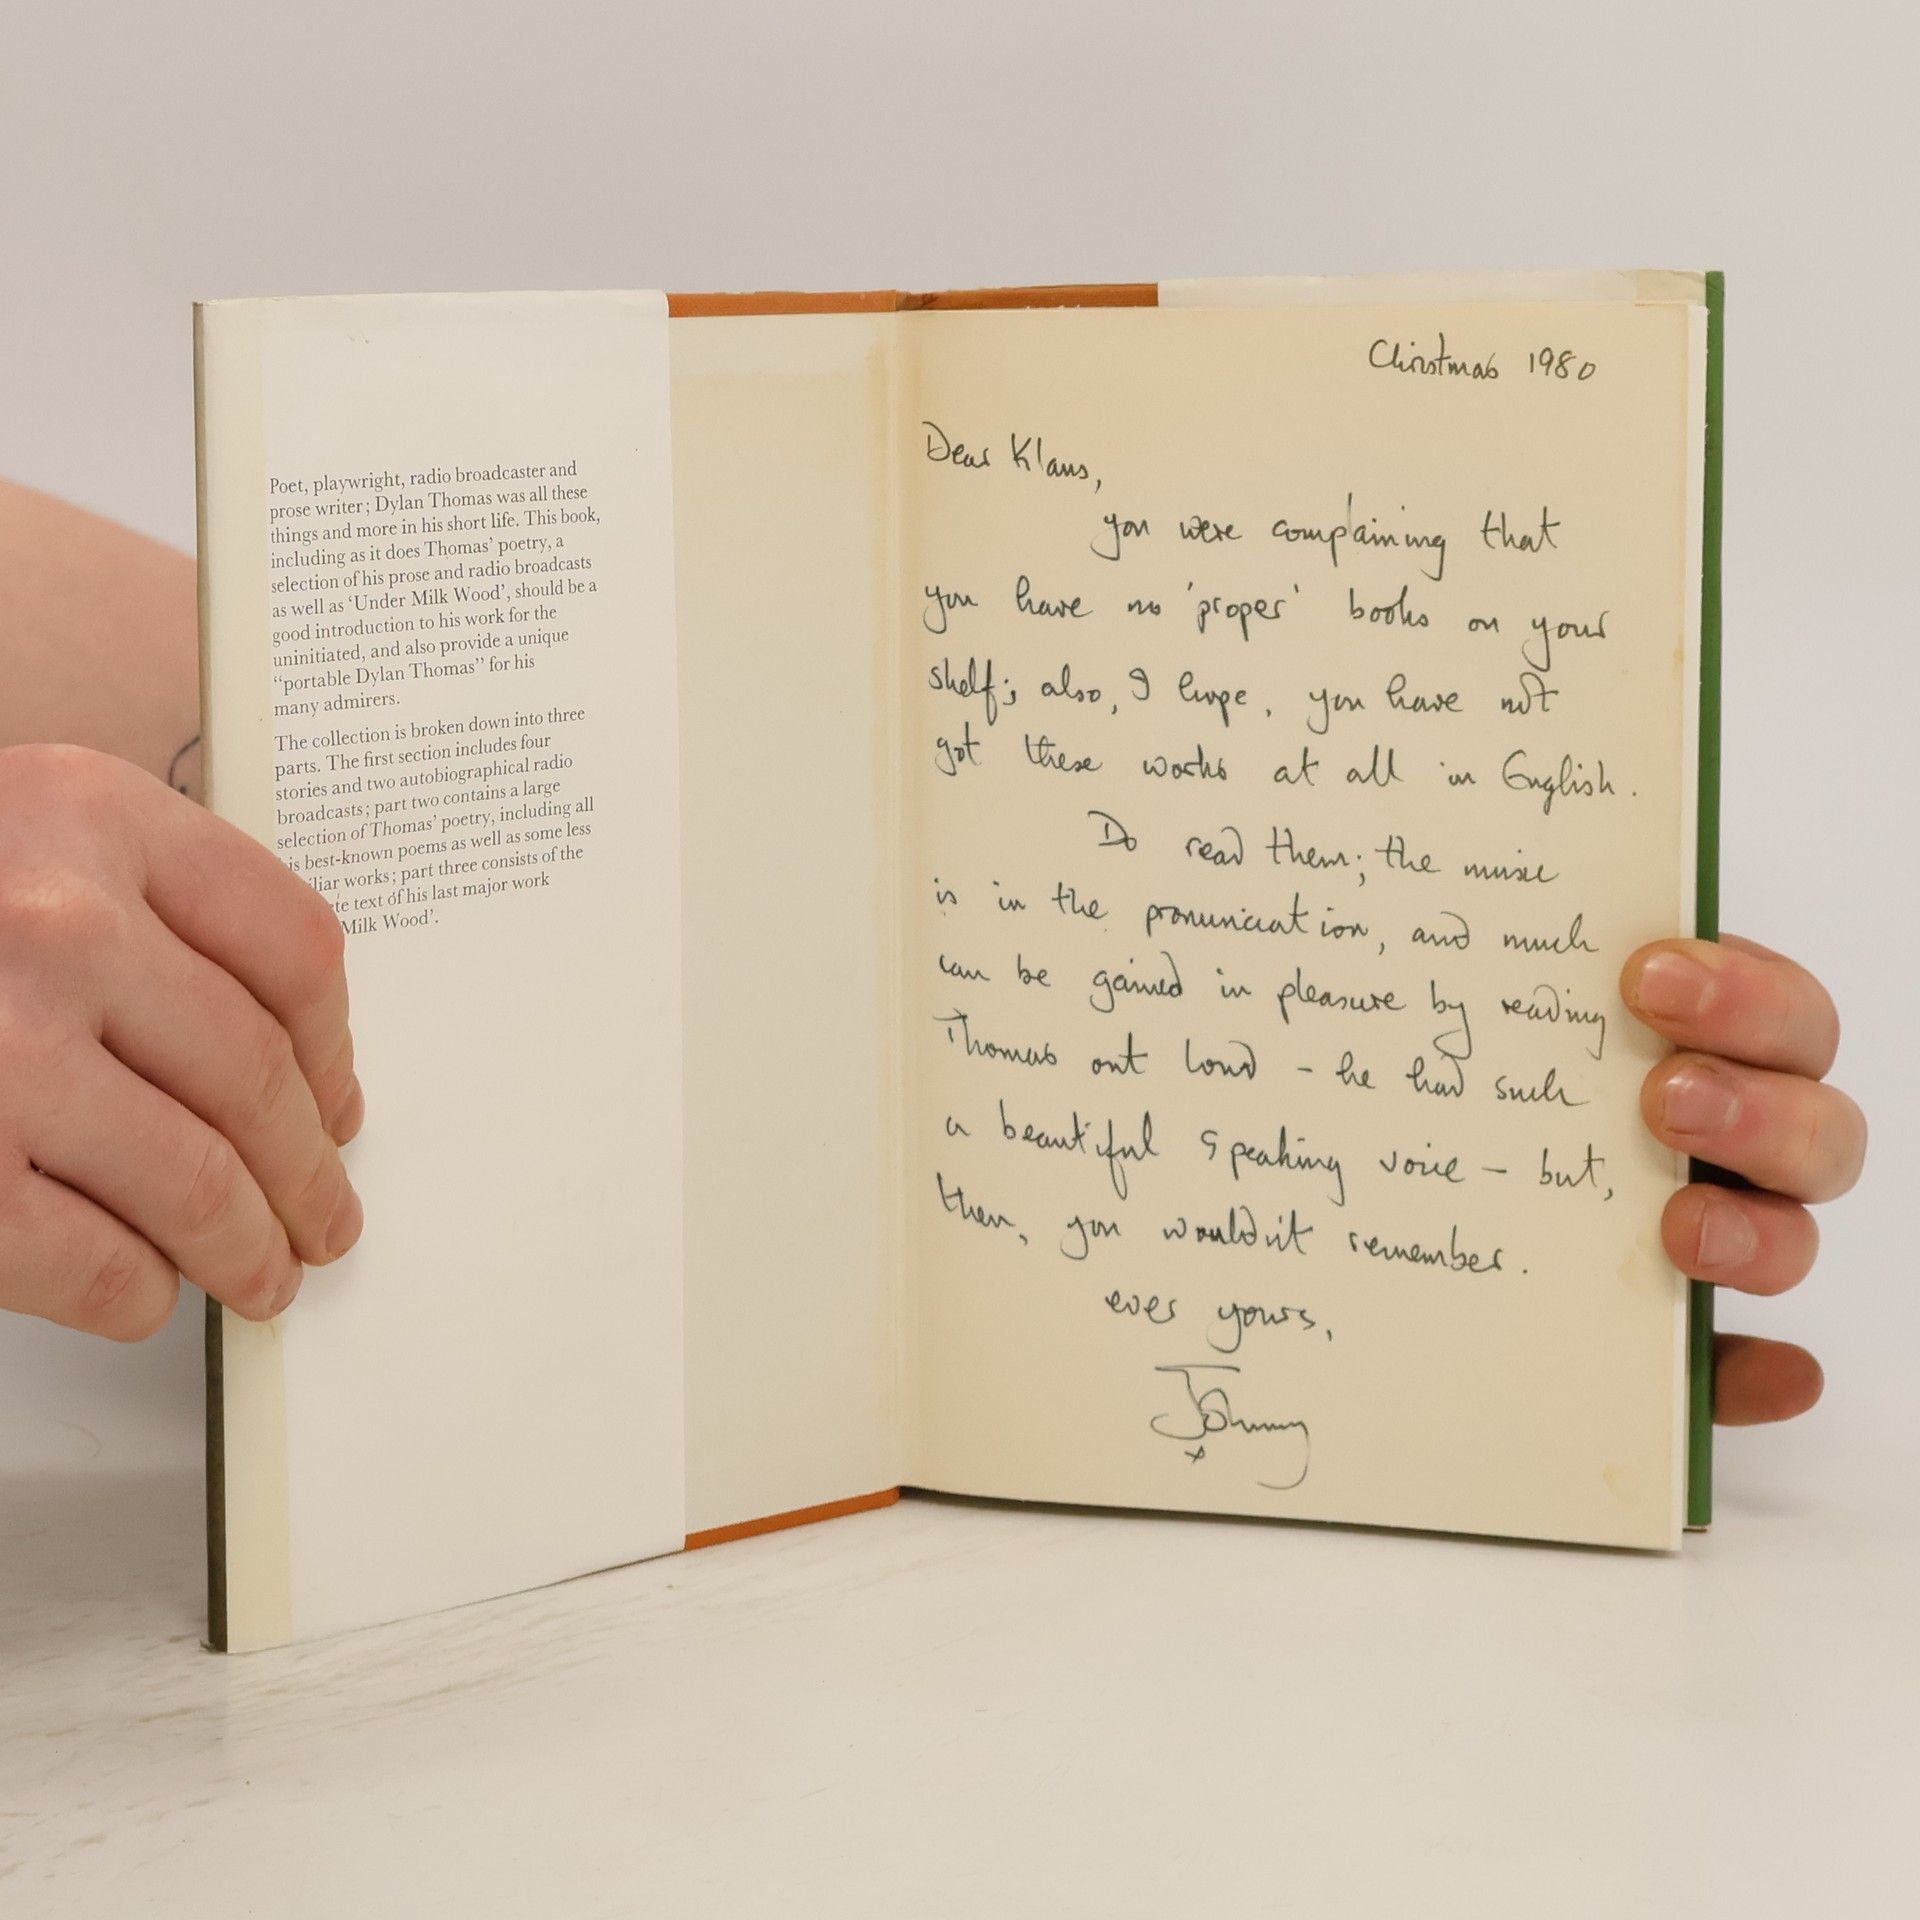 Poet, playwright, radio broadcaster and
prose writer; Dylan Thomas was all these
things and more in his short life. This book,
including as it does Thomas' poetry, a
selection of his prose and radio broadcasts
as well as 'Under Milk Wood', should be a
good introduction to his work for the
uninitiated, and also provide a unique
"portable Dylan Thomas" for his
many admirers.
The collection is broken down into three
parts. The first section includes four
stories and two autobiographical radio
broadcasts; part two contains a large
selection of Thomas' poetry, including all
is best-known poems as well as some less
iliar works; part three consists of the
te text of his last major work
Milk Wood'.
Christmas 1980
Dear Klaus,
you were complaining that
you have no 'proper' books on your
shelf; also, I hope, you have not
got these works at all in English.
Do read them; the music
is in the pronunciation, and much
can be gained in pleasure by reading
Thomas out loud – he had such
a beautiful speaking voice – but,
then, you wouldn't remember.
ever yours,
Johnny
x